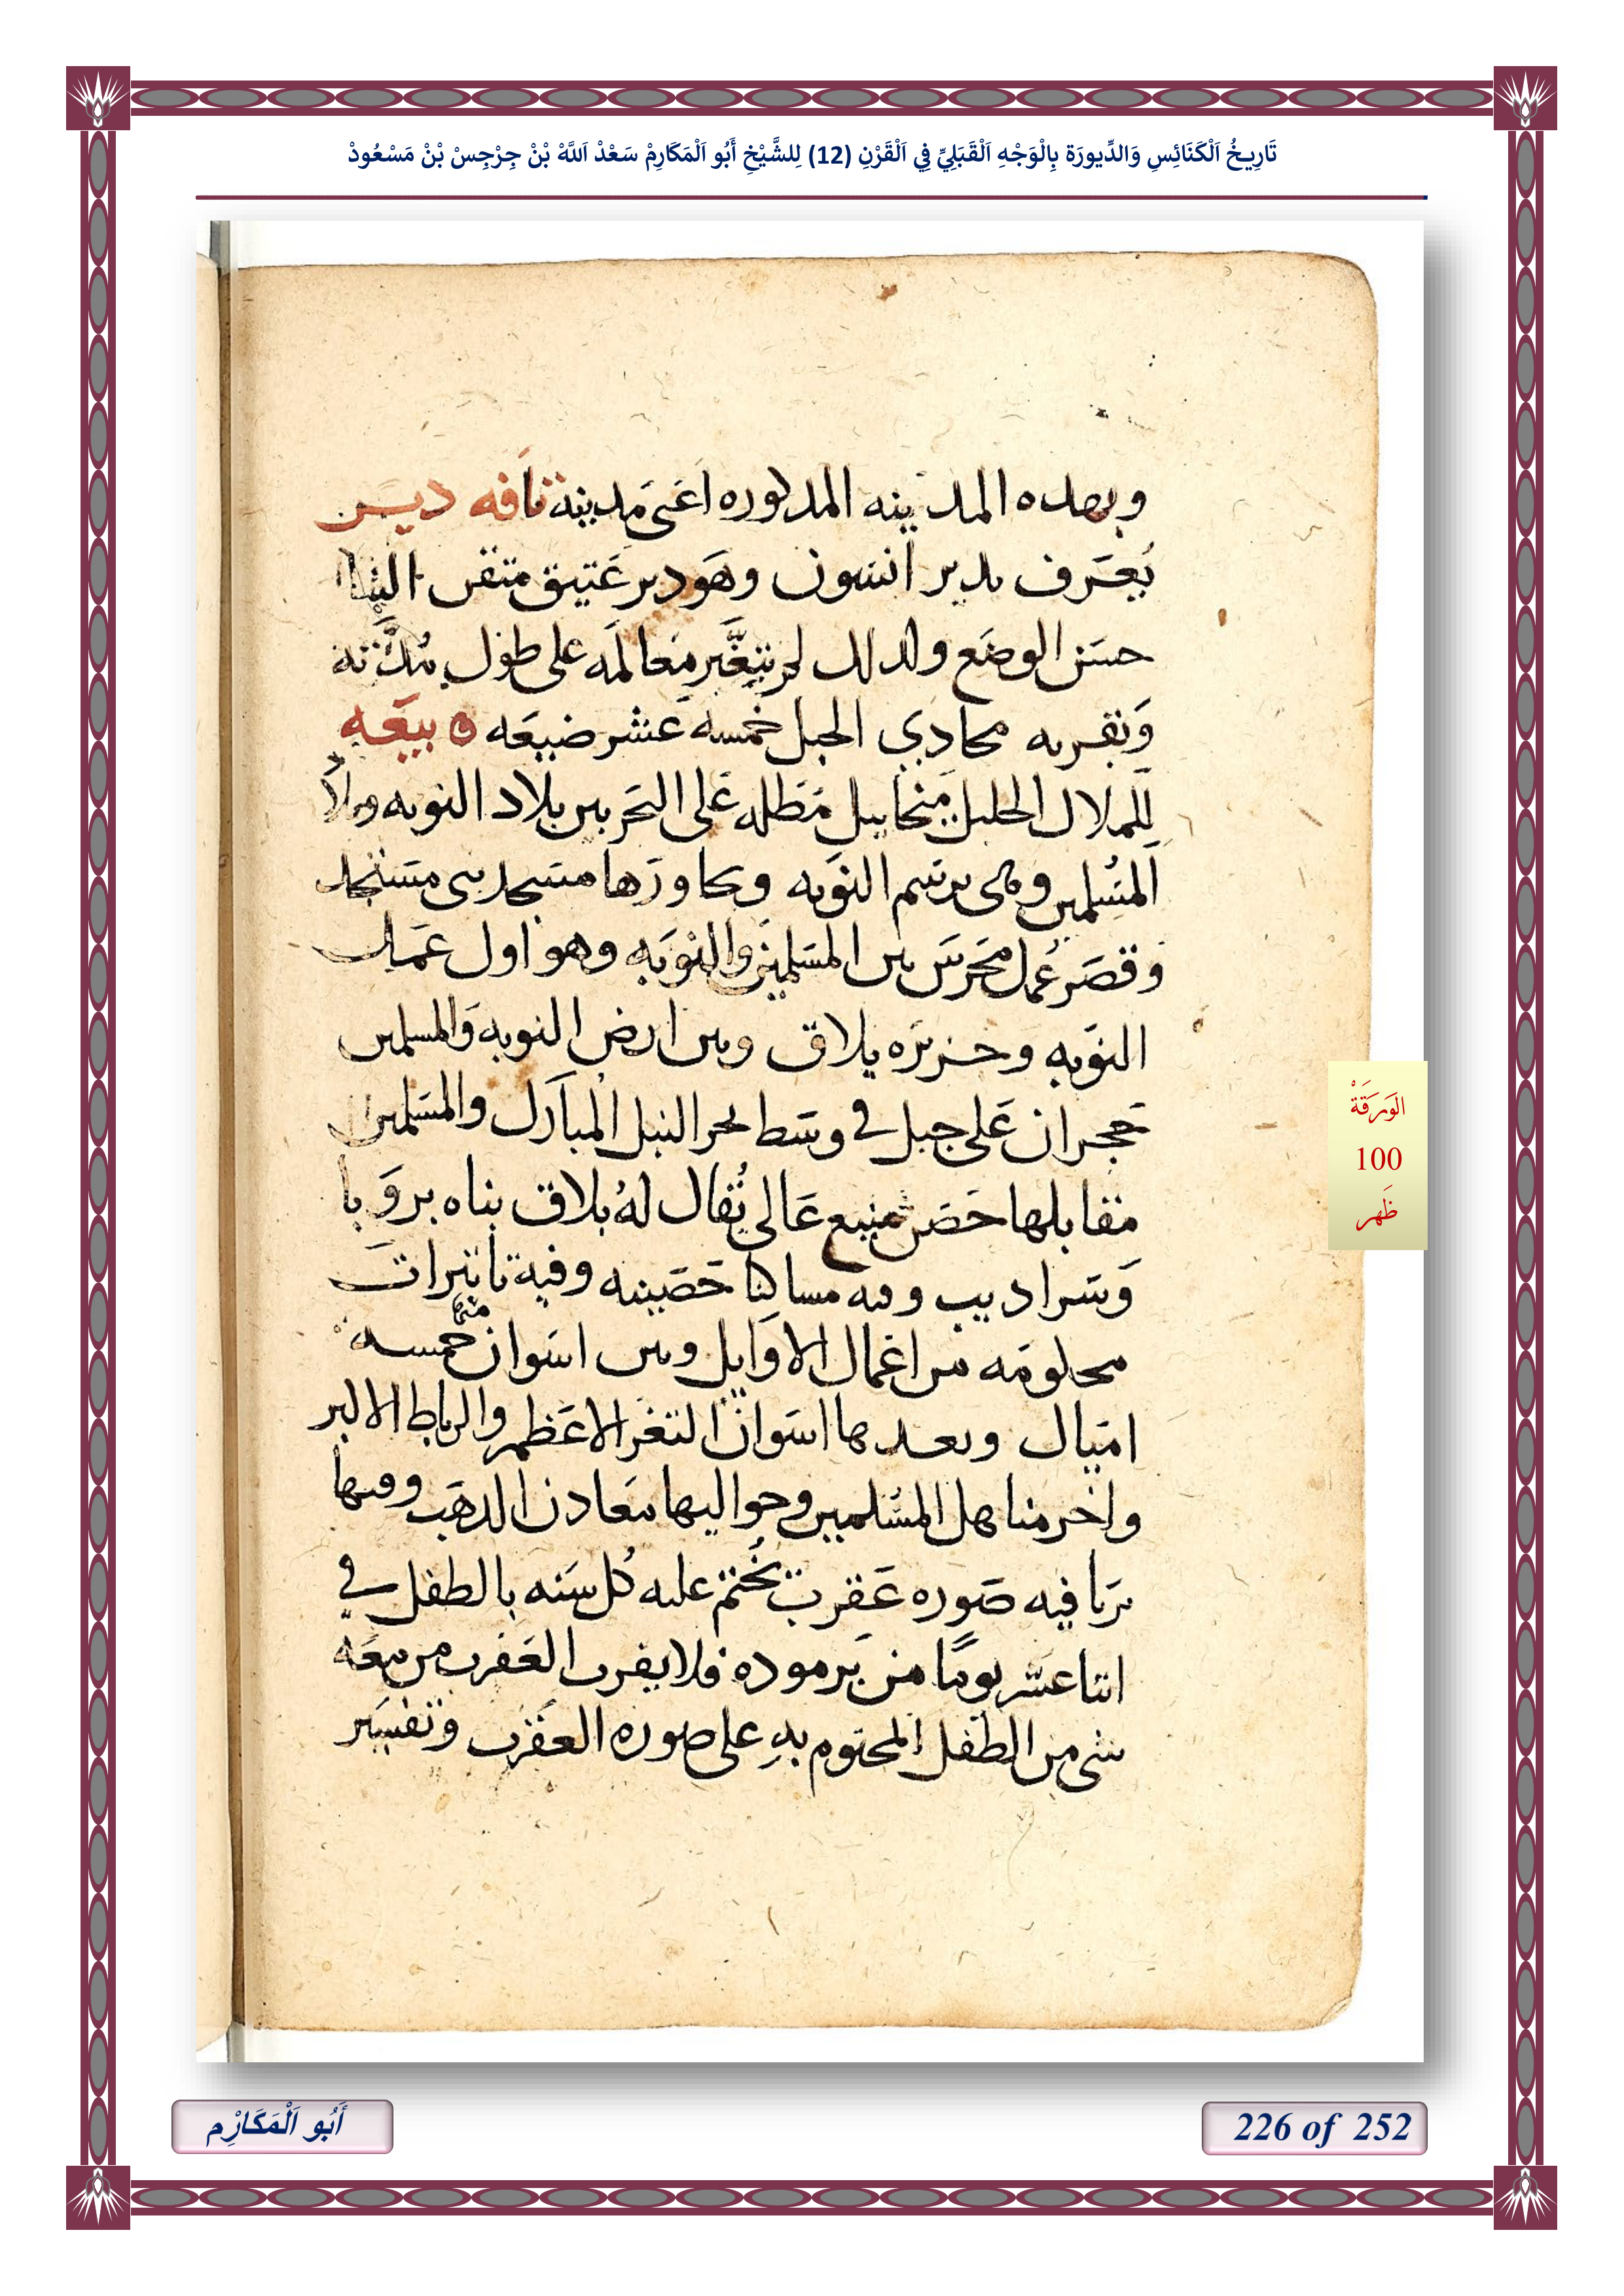 تَارِيخُ اَلْكَنَائِسِ وَالدِّيورَة بِالْوَجْهِ اَلْقَبَلِيِّ فِي اَلْقَرْنِ (12) لِلشَّيْخِ أَبُو اَلْمَكَارِمْ سَعْدْ اَللَّهْ بْنْ جِرْجِسْ بْنْ مَسْعُودْ
وبهده المدينه المدكوره اعنى مدينة نافه ديـر
يُعَرف بدير انسون وهو دير عَتيق متقن البنا
حسَن الوضَع ولدلك لم يتغَّير مَعالمَه على طول مُدَّته
وَبقربه محادي الجبل خمسه عَشر ضيعَه ٥ بيعَه
للملاك الجليل ميخاييل مَطله عَلى البحَر بين بلاد النوبه وبلاد
المسُلمين وهى برسَم النوَبه وبجاورَها مسَجد بنى مسَتجد
وقصَر عُمل محَرسَ بين المسَلمين والنوَبه وهو اول عمَل
النوَبه وجزيرَه يلاق وبين ارض النوبه وَالمسلمين
حَجران عَلى جبل في وسَط بحر النيل المبارَك والمسَلمين
مقابلها حَصَن منيع عَالى يُقال لهُ بلاق بناه بروَ با
وَسَراديب وفيه مساكنا حَصَينه وفيه تاتيرات
محلومَه من اعَمال الاوَايل وبين اسَوان منها خمسه
امَيال وبعدها اسَوان التغر الاعَظم والرباط الاكبر
واخر مناهل المسُلمين وحواليها معَادن الدهَب وفيها
برَبا فيه صَوره عَقرب يُختم عليه كُل سَنه بالطفل في
اتنا عشَر يومًا من برَموده فلا يقرب العَقرب من معَه
شى من الطفل المختوم بهِ على صوره العقَرب وتفسَير
الوَرَقَةْ
100
ظَهر
أَبُو اَلْمَكَارْم
226 of 252